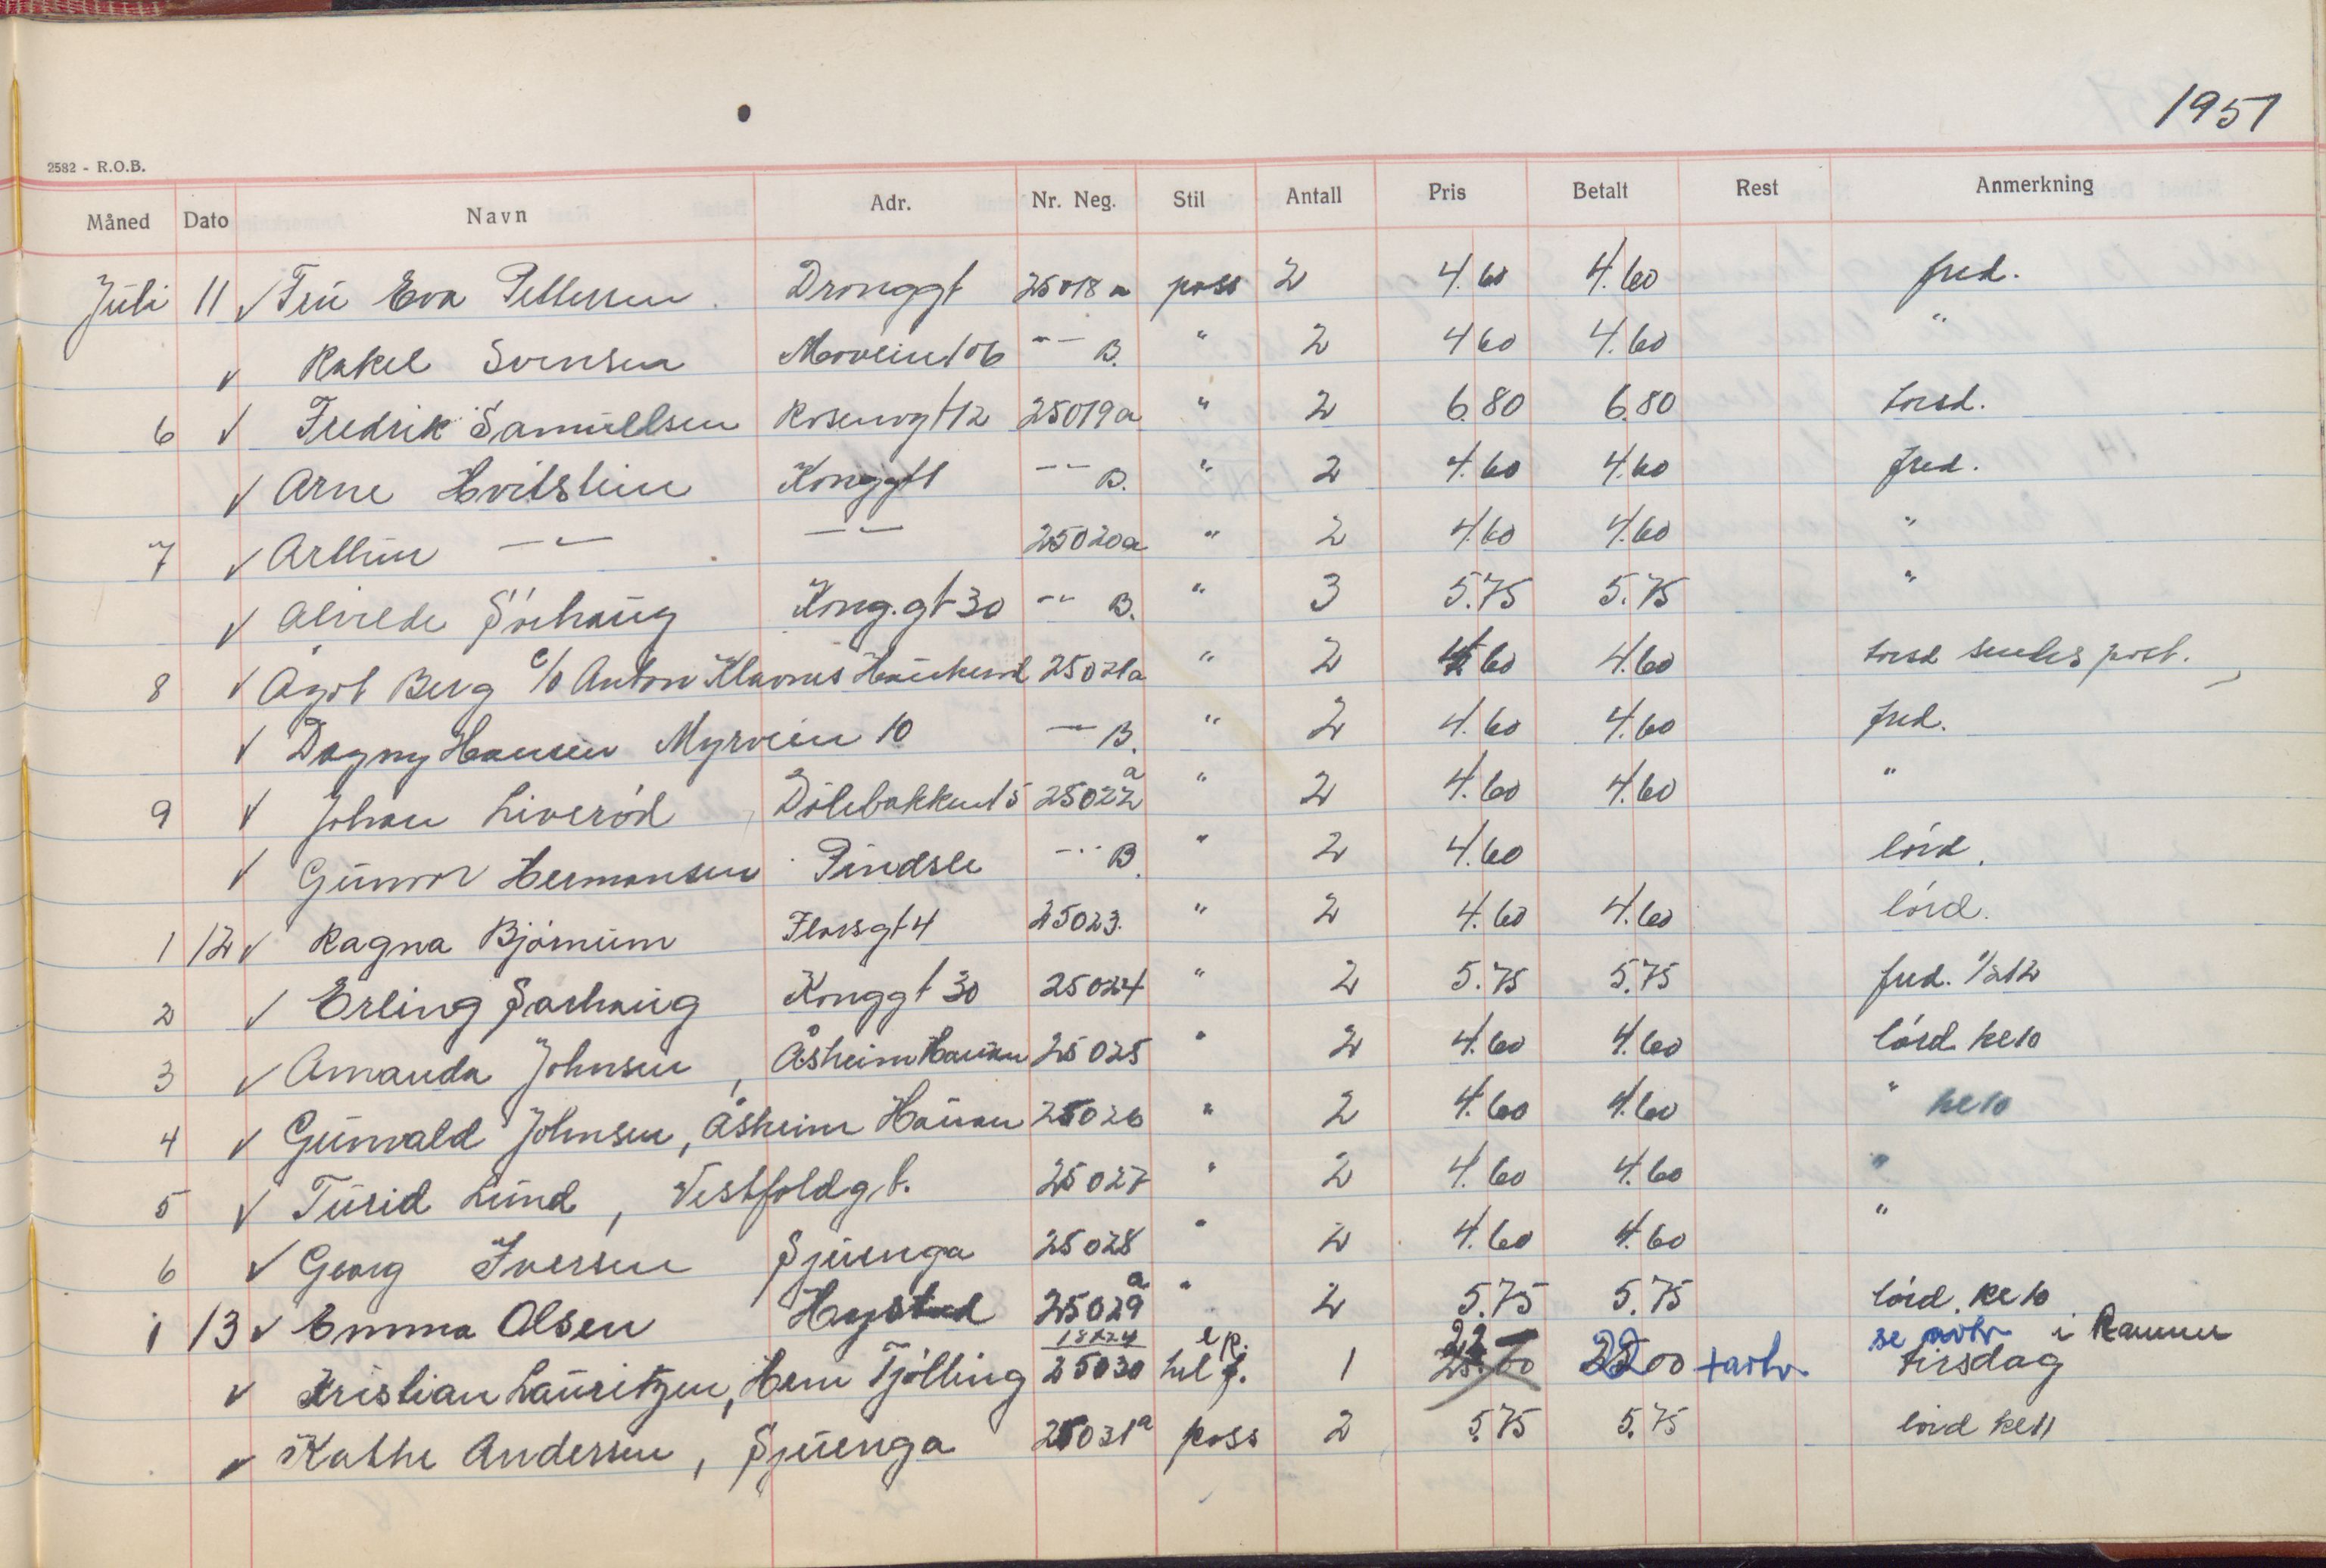 1951
2582 - R.O.B.
Måned Dato Navn Adr. Nr. Neg. Stil Antall Pris Betalt Rest Anmerkning
Juli 11 ✓ Fru Eva Pettersen Dronggt 25018 a pass 2 4.60 4.60 fred.
✓ Rakel Svensen 106 -"- B. " 2 4 60 4.60 "
6 ✓ Fredrik Samuelsen Rosenvgt 12 25019a " 2 6.80 6.80 torsd.
✓ Arne Hvitstein Konggt -"- B. " 2 4.60 4.60 fred.
7 ✓ Arthur -"- -"- 25020a " 2 4.60 4.60 "
✓ Alvilde Sörhaug Kong.gt 30 -"- B. " 3 5.75 5.75 "
8 ✓ Ågot Berg c/o Anton Klavnes Haukerød 25021a " 2 4.60 4.60 torsd sendes post.
✓ Dagny Hansen Myrveien 10 -"- B. " 2 4.60 4.60 fred.
9 ✓ Johan Liveröd Dölebakken 15 25022 a " 2 4.60 4.60 "
✓ Gunvor Hermansen Pindsle -"- B. " 2 4.60 lörd.
1 12 ✓ Ragna Bjørnum Florsgt 4 25023. " 2 4.60 4.60 lörd.
2 ✓ Erling Sørhaug Konggt 30 25024 " 2 5.75 5.75 fred. 1/2 12
3 ✓ Amanda Johnsen, Åsheim Hauan 25025 " 2 4.60 4.60 lörd. kl 10
4 ✓ Gunvald Johnsen, Åsheim Hauan 25026 " 2 4.60 4.60 " kl 10
5 ✓ Turid Lund, Vestfoldgt. 25027 " 2 4.60 4.60 "
6 ✓ Georg Iversen Sjuenga 25028 " 2 4.60 4.60 "
1 13 ✓ Emma Olsen Hystad 25029 a " 2 5.75 5.75 lörd. kl 10
✓ Kristian Lauritzen, Hem Tjölling 18x24 25030 hel f. 1 22 - 25.00 22 00 + avtr se avtr i Ramme tirsdag
✓ Kathe Andersen, Sjuenga 25031a pass 2 5.75 5.75 lörd kl 11